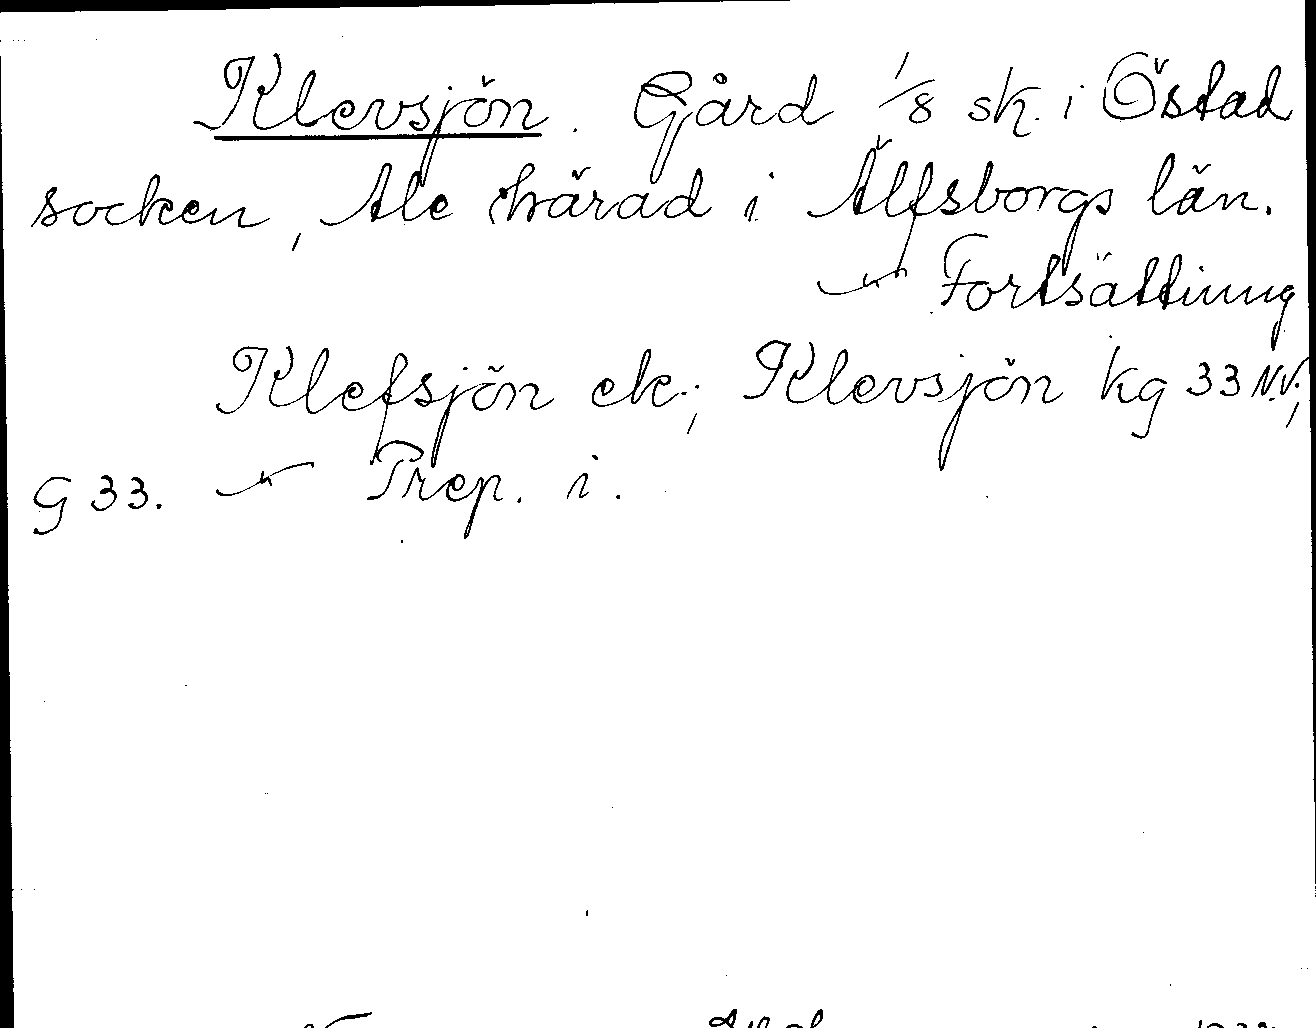 Klevsjön. Gård 1/8 sk. i Östad
socken, Ale härad i Älfsborgs län.
— Fortsättning
Klefsjön ek.; Klevsjön kg 33 N.V.;
G 33. — Prep. i.